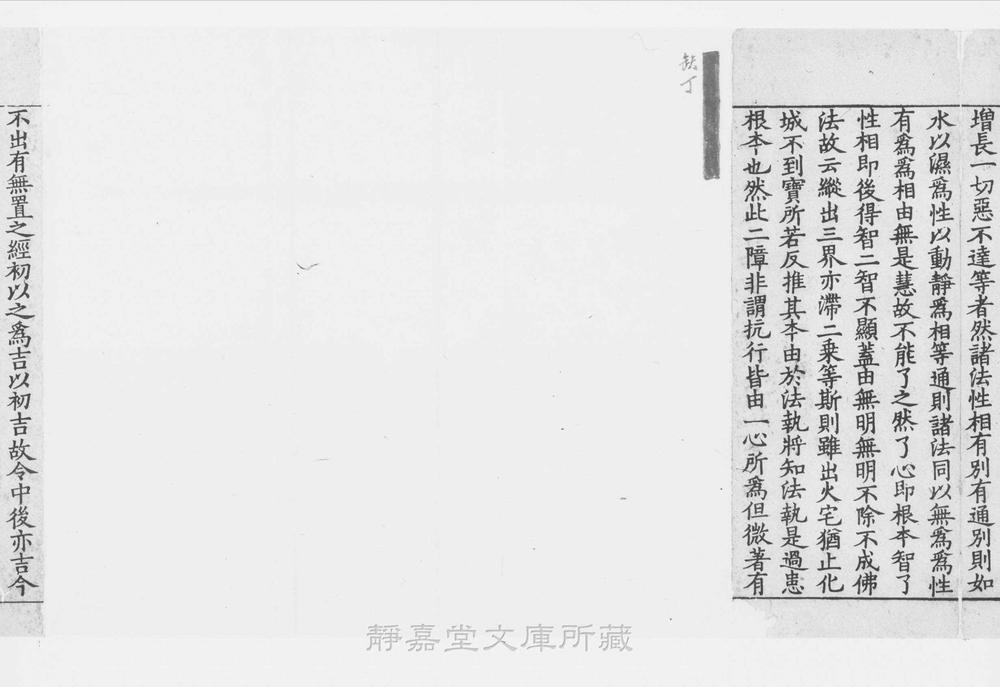 增長一切惡不達等者然諸法性相有別有通別則如
水以濕爲性以動靜爲相等通則諸法同以無爲爲性
有爲爲相由無是慧故不能了之然了心即根本智了
性相即後得智二智不顯蓋由無明無明不除不成佛
法故云縱出三界亦滯二乗等斯則雖出火宅猶止化
城不到寶所若反推其本由於法執將知法執是過患
根本也然此二障非謂抗行皆由一心所爲但微著有
缺丁
不出有無置之經初以之爲吉以初吉故令中後亦吉今
靜嘉堂文庫所藏